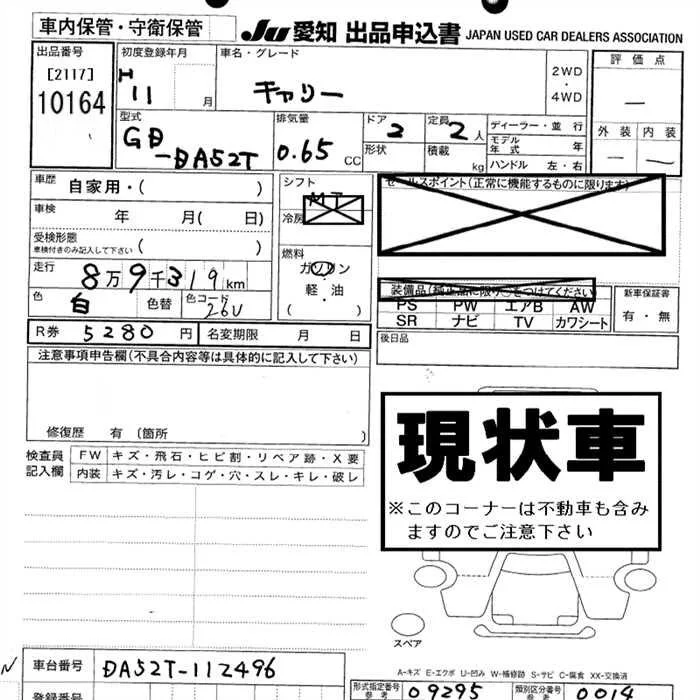 車内保管・守衛保管
Ju 愛知 出品申込書 JAPAN USED CAR DEALERS ASSOCIATION
出品番号
[2117]
10164
初度登録年月
H
11 月
車名・グレード
キャリー
2WD
・
4WD
評価点
—
外装 内装
— —
型式
GD
-DA52T
排気量
0.65 CC
ドア
2
形状
定員
2人
積載
kg
ディーラー・並行
モデル年式 年
ハンドル 左・右
車歴 自家用・( )
車検 年 月( 日)
受検形態
車検付きのみ記入して下さい ( )
走行 8万9千319km
色 白 色替 色コード
26U
R券 5280円 名変期限 月 日
シフト
MT
冷房
燃料
ガソリン
・
軽・油
( )
セールスポイント(正常に機能するものに限ります)
装備品(純正品に限り○をつけてください)
PS PW エアB AW
SR ナビ TV カワシート
新車保証書
有・無
後日品
注意事項申告欄(不具合内容等は具体的に記入して下さい)
修復歴 有 (箇所 )
現状車
※このコーナーは不動車も含み
ますのでご注意下さい
検査員
記入欄
FW キズ・飛石・ヒビ割・リペア跡・X要
内装 キズ・汚レ・コゲ・穴・スレ・キレ・破レ
スペア
A-キズ E-エクボ U-凹み W-補修跡 S-サビ C-腐食 XX-交換済
N
車台番号 DA52T-112496
登録番号
形式指定番号
参考
09295
類別区分番号
参考
0014